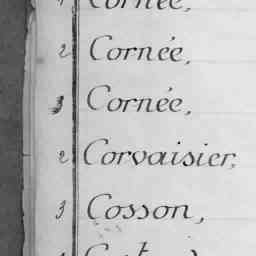 1 Cornée,
2 Cornée,
3 Cornée,
2 Corvaisier,
3 Cosson,